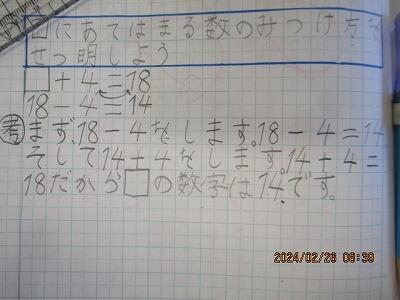 □にあてはまる数のみつけ方を
せつ明しよう
□+4=18
18-4=14
考 まず、18-4をします。18-4=14
そして14+4をします。14+4=
18だから□の数字は14です。
2024/02/26